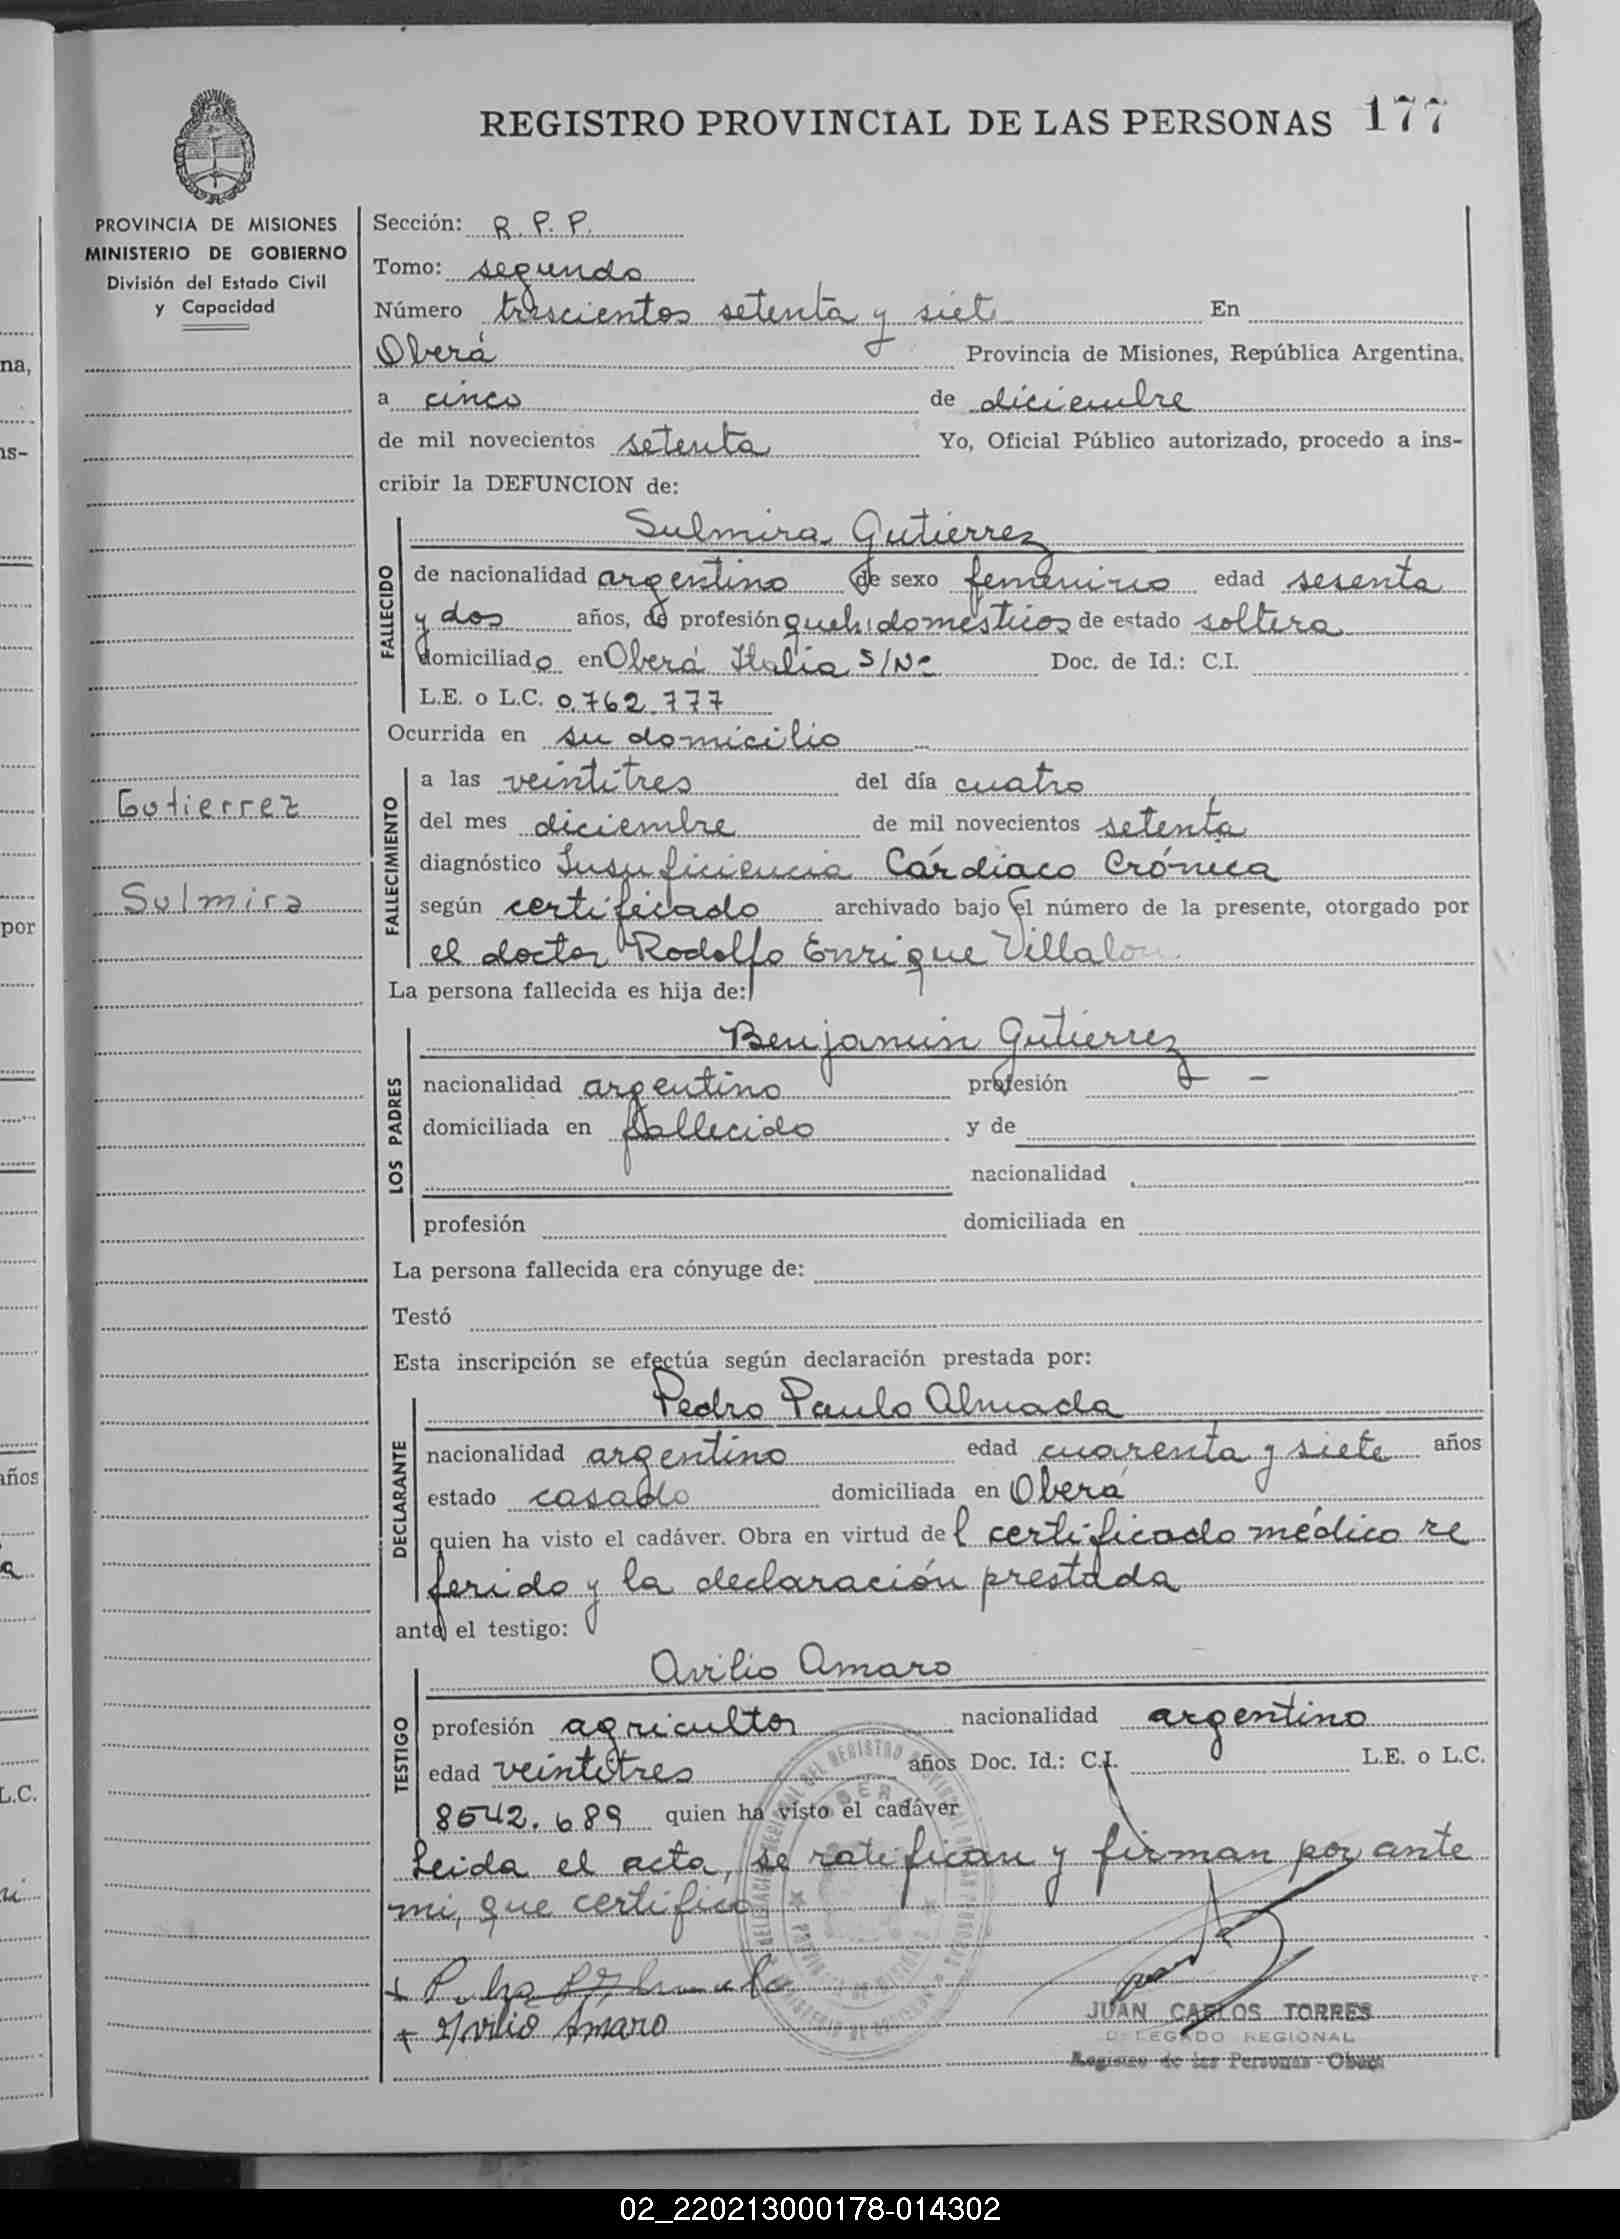 REGISTRO PROVINCIAL DE LAS PERSONAS 177
PROVINCIA DE MISIONES
MINISTERIO DE GOBIERNO
División del Estado Civil
y Capacidad
Gutierrez
Sulmira
Sección: R. P. P.
Tomo: segundo
Número trescientos setenta y siete En
Oberá Provincia de Misiones, República Argentina,
a cinco de diciembre
de mil novecientos setenta Yo, Oficial Público autorizado, procedo a ins-
cribir la DEFUNCION de:
FALLECIDO
Sulmira Gutierrez
de nacionalidad argentino de sexo femenino edad sesenta
y dos años, de profesión queh. domésticos de estado soltera
domiciliado en Oberá Italia S/Nº Doc. de Id.: C.I.
L.E. o L.C. 0.762.777
Ocurrida en su domicilio
FALLECIMIENTO
a las veintitres del día cuatro
del mes diciembre de mil novecientos setenta
diagnóstico Insuficiencia Cárdiaco Crónica
según certificado archivado bajo el número de la presente, otorgado por
el doctor Rodolfo Enrique Villalon
La persona fallecida es hija de:
LOS PADRES
Benjamin Gutierrez
nacionalidad argentino profesión - -
domiciliada en fallecido y de
nacionalidad
profesión domiciliada en
La persona fallecida era cónyuge de:
Testó
Esta inscripción se efectúa según declaración prestada por:
DECLARANTE
Pedro Paulo Almada
nacionalidad argentino edad cuarenta y siete años
estado casado domiciliada en Oberá
quien ha visto el cadáver. Obra en virtud del certificado médico re
ferido y la declaración prestada
ante el testigo:
TESTIGO
Avilio Amaro
profesión agricultor nacionalidad argentino
edad veintitres años Doc. Id.: C.I. L.E. o L.C.
8542.689 quien ha visto el cadáver
Leida el acta, se ratifican y firman por ante
mi, que certifico
+ Avilio Amaro
JUAN CARLOS TORRES
DELEGADO REGIONAL
Registro de las Personas - Oberá
na,
ns-
por
años
L.C.
02_220213000178-014302